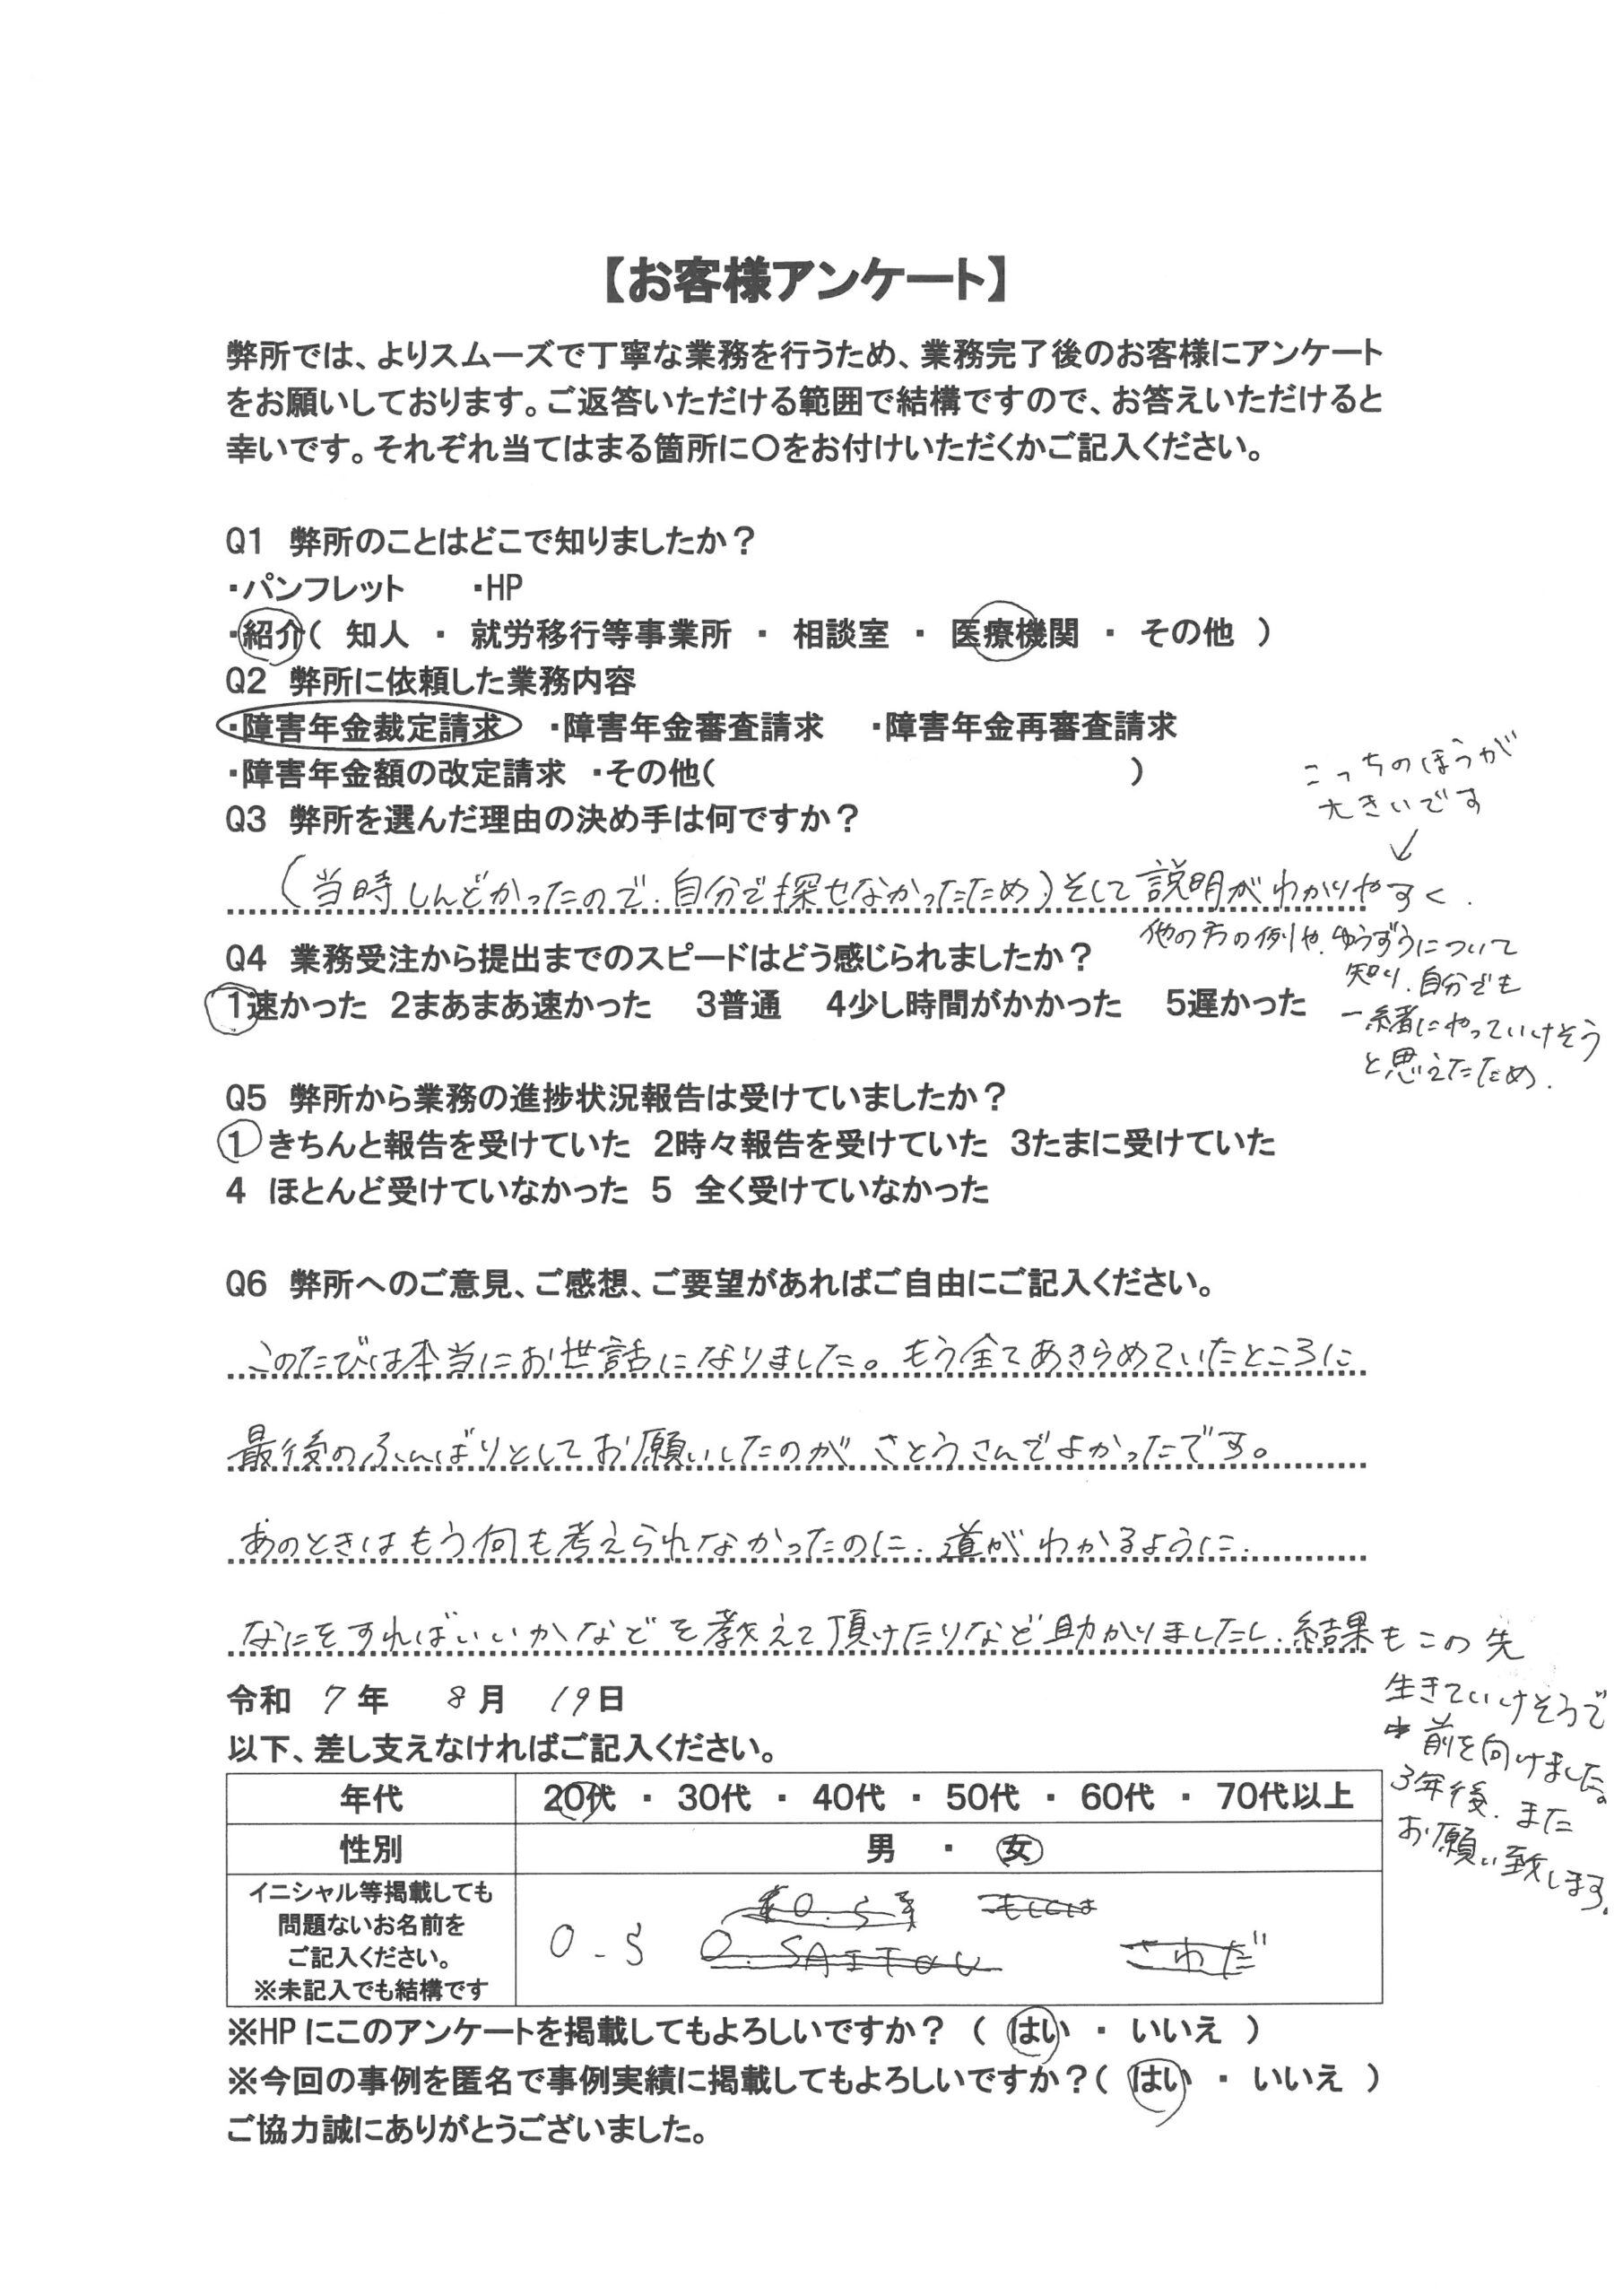 【お客様アンケート】
弊所では、よりスムーズで丁寧な業務を行うため、業務完了後のお客様にアンケート
をお願いしております。ご返答いただける範囲で結構ですので、お答えいただけると
幸いです。それぞれ当てはまる箇所に〇をお付けいただくかご記入ください。
Q1 弊所のことはどこで知りましたか？
・パンフレット ・HP
・紹介( 知人 ・ 就労移行等事業所 ・ 相談室 ・ 医療機関 ・ その他 )
Q2 弊所に依頼した業務内容
・障害年金裁定請求 ・障害年金審査請求 ・障害年金再審査請求
・障害年金額の改定請求 ・その他( )
Q3 弊所を選んだ理由の決め手は何ですか？
こっちのほうが
大きいです
↓
(当時しんどかったので、自分で探せなかったため)そして説明がわかりやすく、
他の方の例や、ゆうずうについて
知り、自分でも
一緒にやっていけそう
と思えたため.
Q4 業務受注から提出までのスピードはどう感じられましたか？
1速かった 2まあまあ速かった 3普通 4少し時間がかかった 5遅かった
Q5 弊所から業務の進捗状況報告は受けていましたか？
1 きちんと報告を受けていた 2時々報告を受けていた 3たまに受けていた
4 ほとんど受けていなかった 5 全く受けていなかった
Q6 弊所へのご意見、ご感想、ご要望があればご自由にご記入ください。
このたびは本当にお世話になりました。もう全てあきらめていたところに
最後のふんばりとしてお願いしたのが さとうさんでよかったです。
あのときはもう何も考えられなかったのに、道がわかるように、
なにをすればいいかなどを教えて頂けたりなど助かりましたし、結果もこの先
生きていけそうで
前を向けました。
3年後、また
お願い致します。
令和 7年 8月 19日
以下、差し支えなければご記入ください。
年代 20代 ・ 30代 ・ 40代 ・ 50代 ・ 60代 ・ 70代以上
性別 男 ・ 女
イニシャル等掲載しても
問題ないお名前を
ご記入ください。
※未記入でも結構です
O-S O.SAITOU さわだ
※HPにこのアンケートを掲載してもよろしいですか？ ( はい ・ いいえ )
※今回の事例を匿名で事例実績に掲載してもよろしいですか？( はい ・ いいえ )
ご協力誠にありがとうございました。